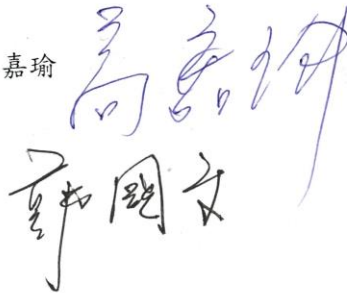 嘉瑜 高嘉瑜
韓國文